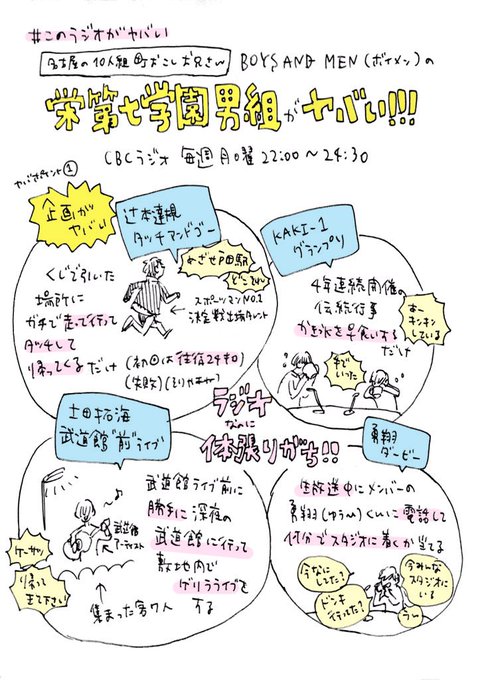 #このラジオがヤバい
名古屋の10人組町おこしお兄さん BOYS AND MEN(ボイメン)の
栄第七学園男組がヤバい!!!
CBCラジオ 毎週月曜 22:00〜24:30
ヤバポイント①
企画が
ヤバい
辻本達規
タッチアンドゴー
くじで引いた
場所に
ガチで走って行って
タッチして
帰ってくるだけ
めざせ戸田駅
どこやねん
スポーツマンNO.1
決定戦出場タレント
(初回は往復24キロ)
(失敗)(そりゃそうだ)
KAKI-1
グランプリ
4年連続開催の
伝統行事
かき氷を早食いする
だけ
あー
キンキン
している
ラジオ
なのに
体張りがち!!
土田拓海
武道館"前"ライブ
武道館ライブ前に
勝手に深夜の
武道館に行って
敷地内で
ゲリラライブを
する
武道館
アーティスト
ケーサツ
帰って
きて下さい
集まった客7人
勇翔
ダービー
生放送中にメンバーの
勇翔(ゆうひ)くんに電話して
何分でスタジオに着くか当てる
今なに
してた?
ドンキ
行ってた?
今みんな
スタジオに
いる
うん